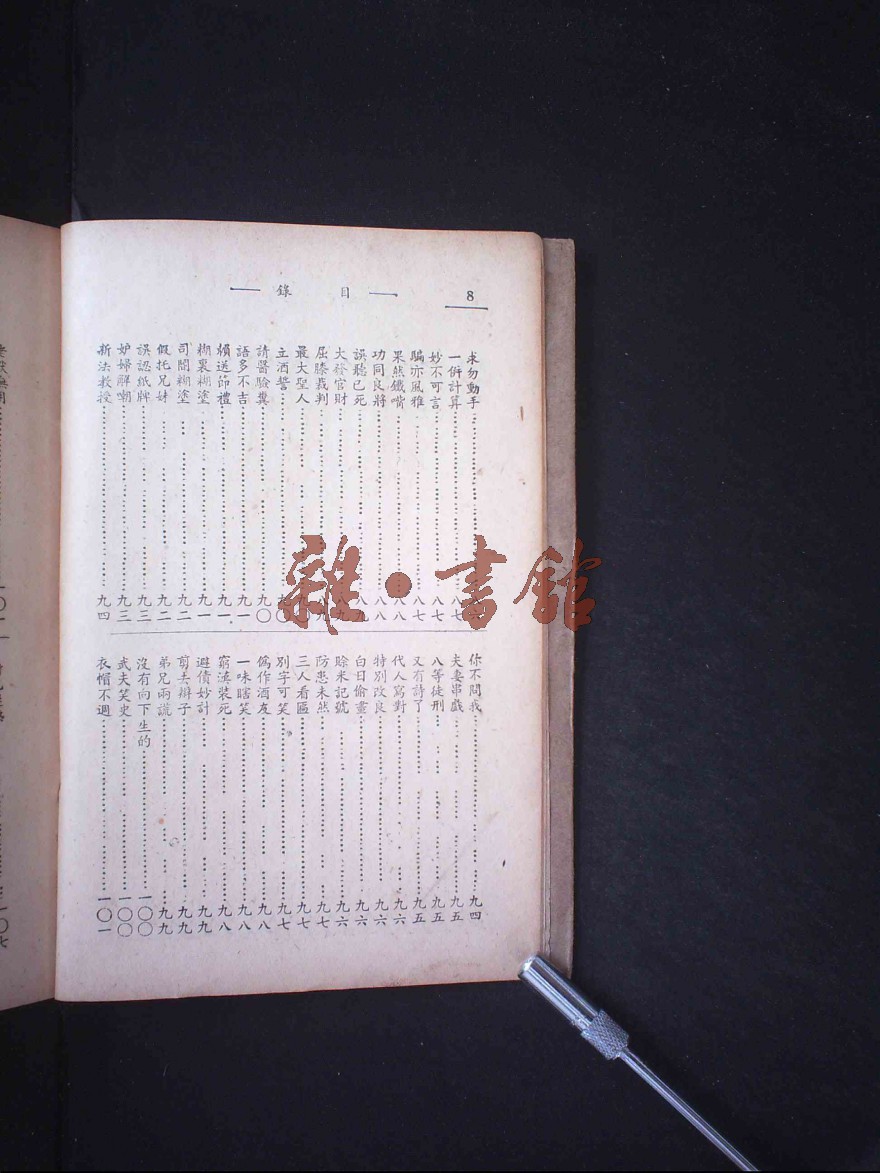 8
目錄
未勿動手
一併計算 八七
妙不可言 八七
騙亦風雅 八七
果然鐵嘴 八八
功同良將 八八
誤聽已死
大發官財
屈膝裁判
最大聖人
立酒誓
請醫驗糞 九〇
語多不吉 九一
賴送節禮 九一
糊裏糊塗 九一
司閽糊塗 九二
假托兄妹 九二
誤認紙牌 九三
妒婦解嘲 九三
新法教授 九四
你不問我 九四
夫妻串戲 九五
八等徒刑 九五
又有詩了 九五
代人寫對 九六
特別改良 九六
白日偷畫 九六
賒米記號 九六
防患未然 九七
三人看匾 九七
別字可笑 九七
僞作酒友 九八
一味瞎笑 九八
窮漢裝死 九八
避債妙計 九九
剪去辮子 九九
弟兄兩謊 九九
沒有向下生的 一〇〇
武夫笑史 一〇〇
衣帽不週 一〇一
雜·書館